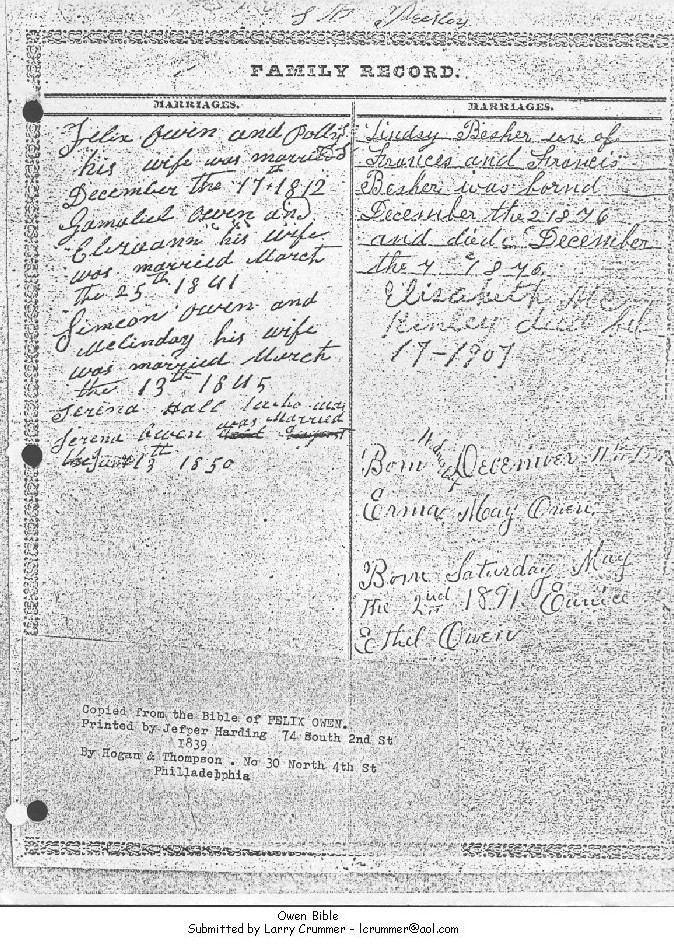 FAMILY RECORD.
MARRIAGES.
Felix Owen and Polly
his wife was married
December the 17th 1812
Gamaliel Owen and
his wife
was married March
the 25th 1841
Simeon Owen and
Melinday his wife
was married March
the 13th 1845
Serena Hall who was
Serena Owen was Married
the June 13th 1850
MARRIAGES.
Lindsy Besher son of
Frances and Francis
Besher was bornd
December the 2 1876
and died December
the 7 1876
Elisabeth Mc
Kinley died
17-1907
Born December 11th
Erma May Owen
Born Saturday May
the 2nd 1891 Eunice
Ethel Owen
Copied from the Bible of FELIX OWEN.
Printed by Jefper Harding 74 South 2nd St
1839
By Hogan & Thompson . No 30 North 4th St
Philladelphia
Owen Bible
Submitted by Larry Crummer - lcrummer@aol.com